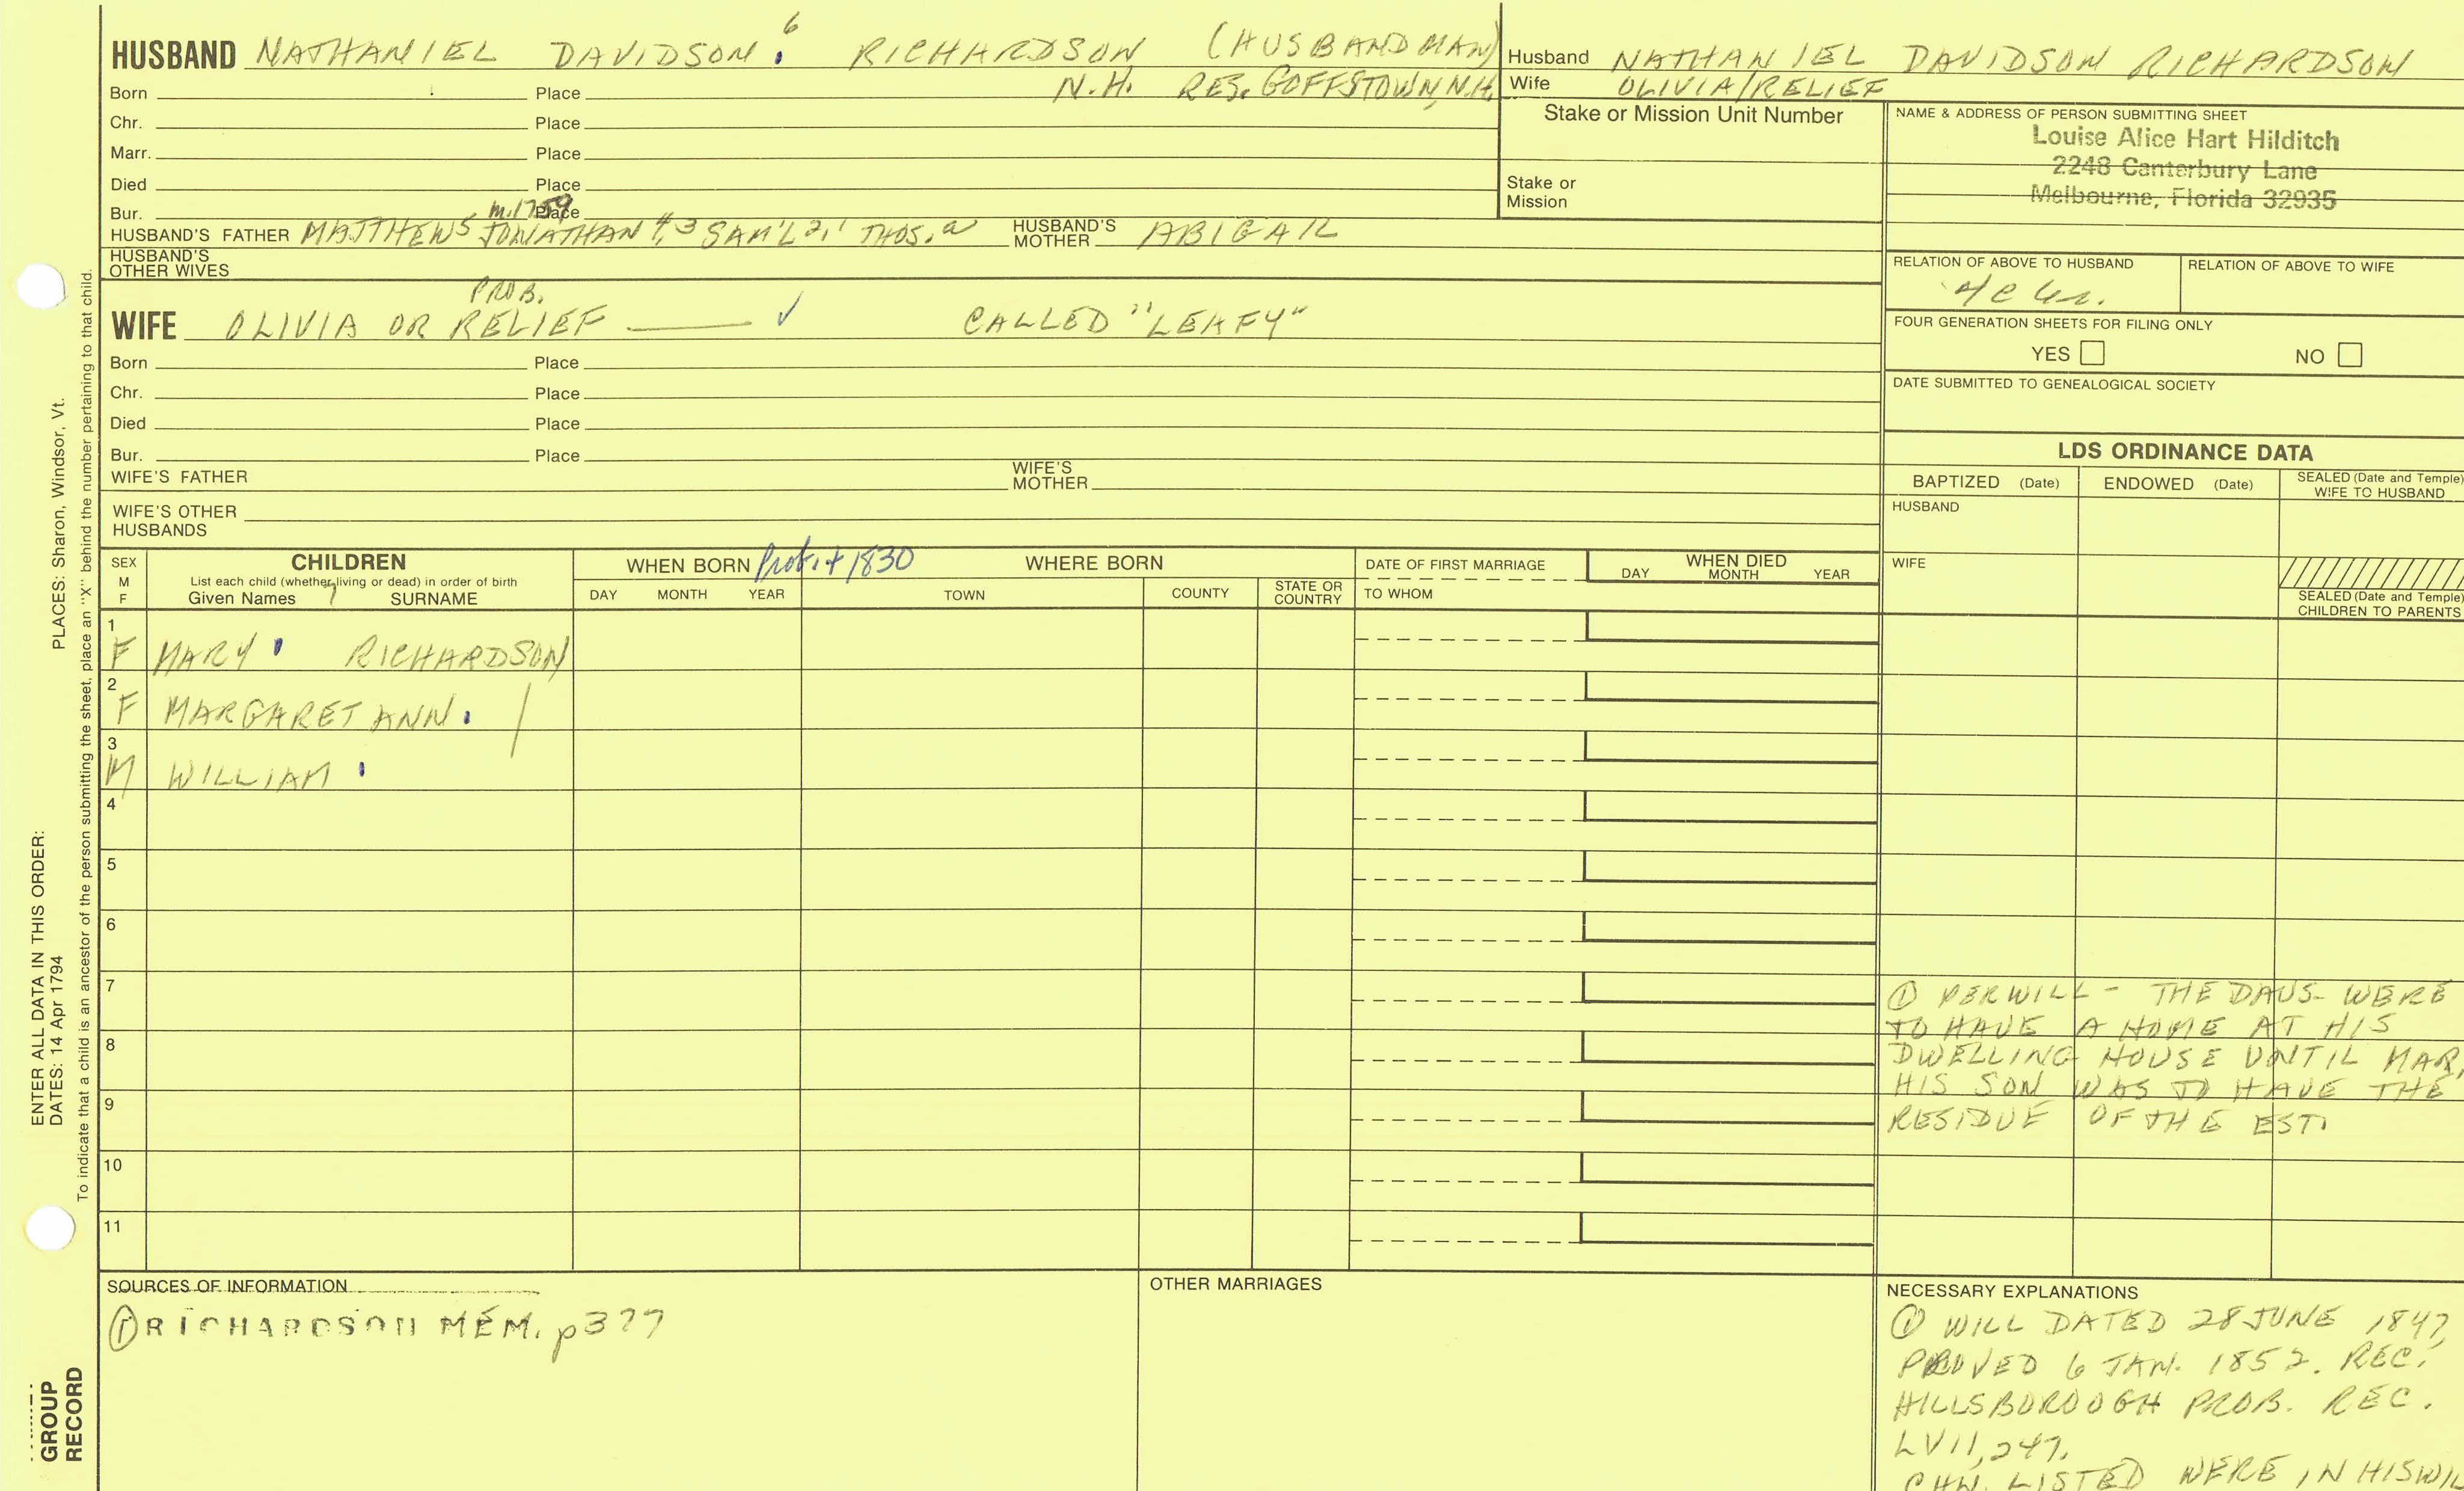 HUSBAND NATHANIEL DAVIDSON 6 RICHARDSON (HUSBANDMAN)
N.H. RES. GOFFSTOWN, N.H.
Born Place
Chr. Place
Marr. Place
Died Place
Bur. Place
m. 1759
HUSBAND'S FATHER MATTHEW 5 JONATHAN 4,3 SAM'L 2,1 THOS. a HUSBAND'S MOTHER ABIGAIL
HUSBAND'S OTHER WIVES
PROB.
WIFE OLIVIA OR RELIEF ✓ CALLED "LEAFY"
Born Place
Chr. Place
Died Place
Bur. Place
WIFE'S FATHER WIFE'S MOTHER
WIFE'S OTHER HUSBANDS
Husband NATHANIEL DAVIDSON RICHARDSON
Wife OLIVIA/RELIEF
Stake or Mission Unit Number
Stake or
Mission
NAME & ADDRESS OF PERSON SUBMITTING SHEET
Louise Alice Hart Hilditch
2248 Canterbury Lane
Melbourne, Florida 32935
RELATION OF ABOVE TO HUSBAND RELATION OF ABOVE TO WIFE
FOUR GENERATION SHEETS FOR FILING ONLY
YES NO
DATE SUBMITTED TO GENEALOGICAL SOCIETY
LDS ORDINANCE DATA
BAPTIZED (Date) ENDOWED (Date) SEALED (Date and Temple)
WIFE TO HUSBAND
HUSBAND
WIFE
SEALED (Date and Temple)
CHILDREN TO PARENTS
SEX
M
F
CHILDREN
List each child (whether living or dead) in order of birth
Given Names 7 SURNAME
WHEN BORN Prob. + 1830
DAY MONTH YEAR
WHERE BORN
TOWN COUNTY STATE OR COUNTRY
DATE OF FIRST MARRIAGE
TO WHOM
WHEN DIED
DAY MONTH YEAR
1
F MARY RICHARDSON
2
F MARGARET ANN
3
M WILLIAM
4
5
6
7
8
9
10
11
① PER WILL - THE DAUS. WERE
TO HAVE A HOME AT HIS
DWELLING HOUSE UNTIL MAR,
HIS SON WAS TO HAVE THE
RESIDUE OF THE EST.
SOURCES OF INFORMATION
① RICHARDSON MEM. p377
OTHER MARRIAGES
NECESSARY EXPLANATIONS
① WILL DATED 28 JUNE 1847,
PROVED 6 JAN. 1852. REC.
HILLSBOROOGH PROB. REC.
LVII, 247.
CHN. LISTED WERE IN HIS WIL
PLACES: Sharon, Windsor, Vt.
ENTER ALL DATA IN THIS ORDER:
DATES: 14 Apr 1794
To indicate that a child is an ancestor of the person submitting the sheet, place an "X" behind the number pertaining to that child.
GROUP
RECORD